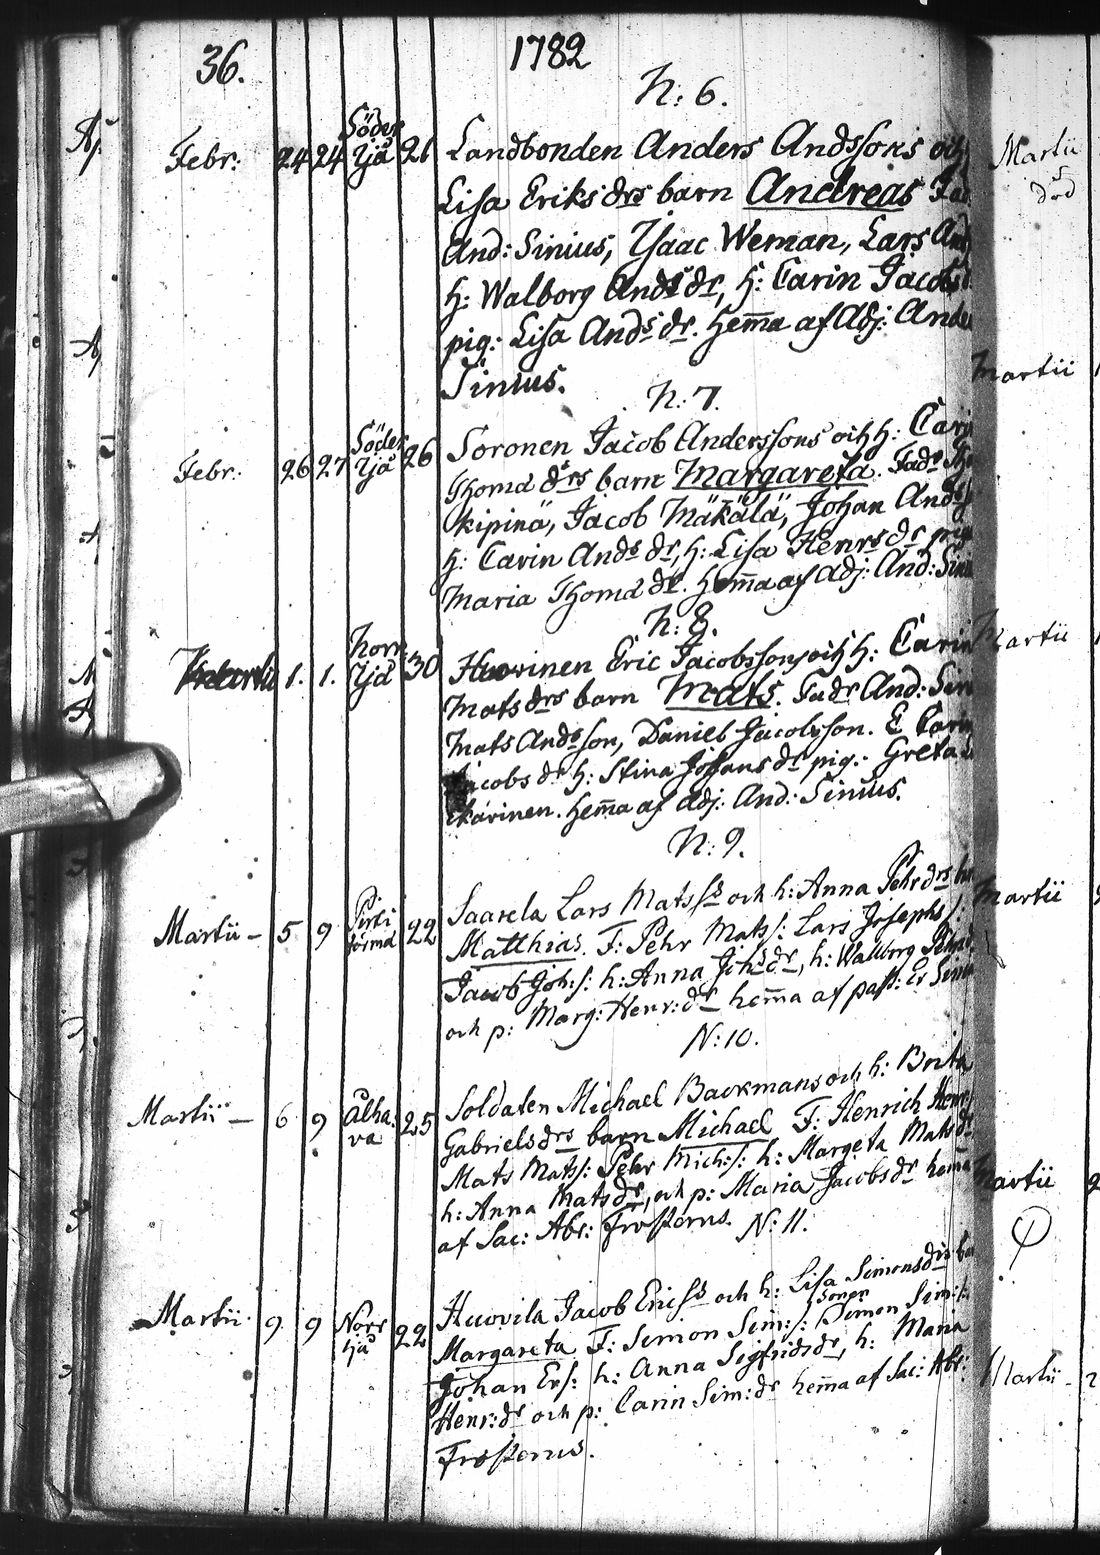 36. 1782
N: 6.
Febr: 24 24 Söder Yjå 26 Landbonden Anders Andssons och
Lisa Eriks drs barn Andreas Fad
And: Sinius, Ysaac Weman, Lars And
h: Walborg Ands dr, h: Carin Jacobs
pig: Lisa Ands dr. hem̄a af Adj: Ande
Sinius.
N: 7.
Febr: 26 27 Söder Yjå 26 Soronen Jacob Anderssons och h: Carin
Thomd drs barn Margareta. Fadr Tho
kipinä, Jacob Mäkälä, Johan Ands
h: Carin Ands dr, h: Lisa Henrs dr pig
Maria Thomd dr. hem̄a af Adj: And: Sini
N: 8.
Martii 1. 1. Norr Yjå 30 Huovinen Eric Jacobssons och h: Carin
Mats drs barn Mats. Fadr And: Sin
Mats Andsson, Daniel Jacobsson. E Carin
Jacobs dr h: Stina Johans dr pig: Greta
Karinen. hem̄a af Adj: And: Sinius.
N: 9.
Martii – 5 9 Pirti 22 Saarela Lars Matss och h: Anna Pehrdrs
Matthias. F: Pehr Mats: Lars Josephs:
Jacob Joh:s: h: Anna Johsdr, h: Walborg
och p: Marg: Henr: dr hem̄a af past: Er Sinius
N: 10.
Martii – 6 9 Alha: va 25 Soldaten Michael Backmans och h: Brita
Gabrielsdrs barn Michael F: Henrich Henr
Mats Mats: Pehr Mich:s: h: Margeta Mats dr
h: Anna Matsdr, och p: Maria Jacobsdr hem̄a
af Sac: Abr: Frosterus. N: 11.
Martii 9 9 Norr Yjå 22 Huovila Jacob Ericss och h: Lisa Simonsdrs ba
Margareta F: Simon Sim:s: Simon Sim:s:
Johan Ers: h: Anna Sigfridsdr, h: Maria
Henr:dr och p: Carin Sim:dr hem̄a af Sac: Abr:
Frosterus.
Martii
död
Martii
Martii
Martii
Martii
Martii